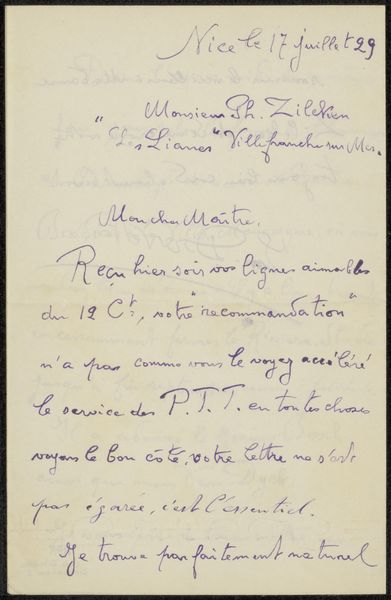 Nice le 17 juillet 29
Monsieur Ph. Zilcken
"Les Lianes" Villefranche sur Mer.
Mon cher Maître,
Reçu hier soir vos lignes aimables
du 12 Ct, votre "recommandation"
n'a pas comme vous le voyez accéléré
le service des P.T.T. en toutes choses
voyons le bon côté, votre lettre ne s'est
pas égarée, c'est l'essentiel.
Je trouve parfaitement naturel